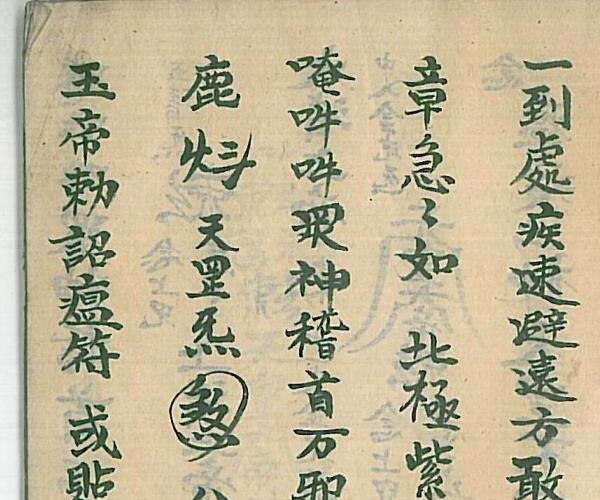 一到處疾速避遠方敢
章急〻如 北極紫
唵吽吽眾神稽首万邪
鹿 天罡炁 煞
玉帝勅詔瘟符 或貼